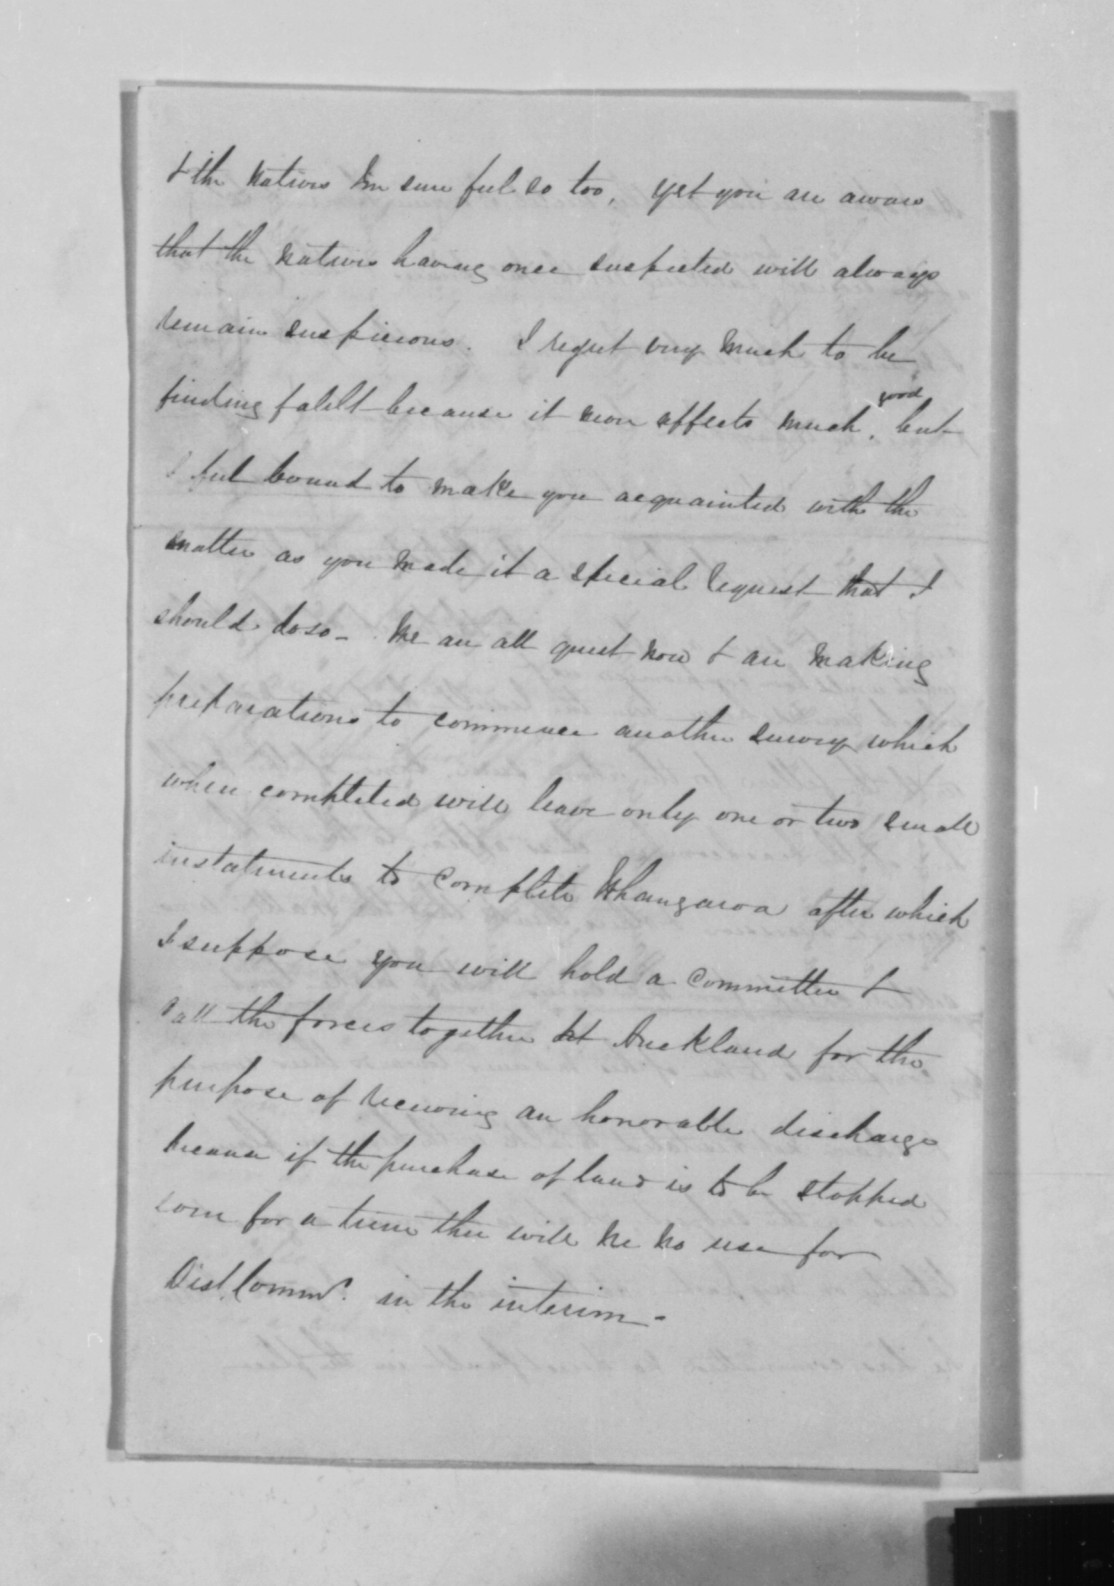 & the Natives I'm sure feel so too, yet you are aware
that the Natives having once suspected will always
remain suspicious. I regret very much to be
finding falilt because it never affects much good, but
I feel bound to make you acquainted with the
matter as you made it a special request that I
should do so - We are all quiet now & are making
preparations to commence another survey which
when completed will leave only one or two small
instalments to complete Whangaroa after which
I suppose you will hold a committee &
call the forces together at Auckland for the
purpose of receiving an honorable discharge
because if the purchase of land is to be stopped
even for a time there will be no use for
Dist. Commrs. in the interim -